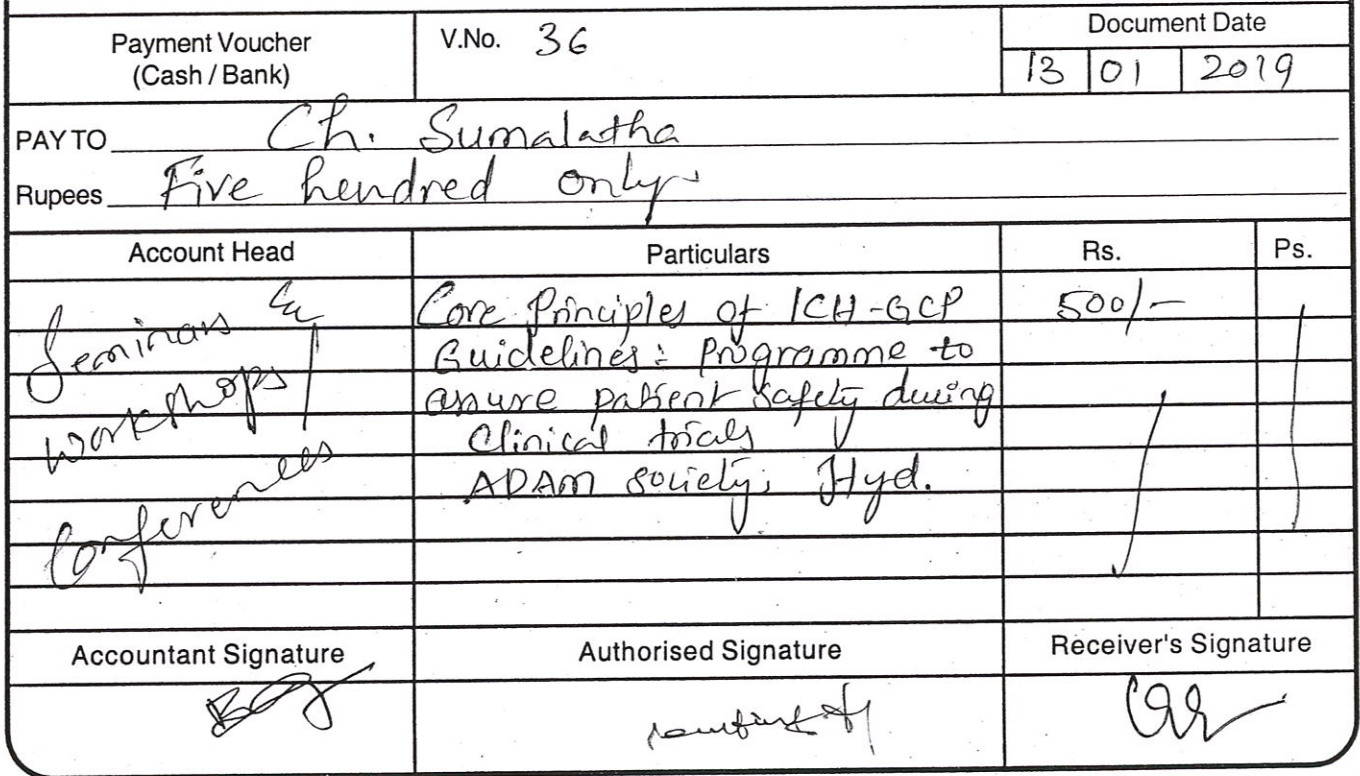 Payment Voucher
(Cash / Bank)
V.No. 36
Document Date
13 01 2019
PAY TO Ch. Sumalatha
Rupees Five hendred only
Account Head
Particulars
Rs.
Ps.
Seminars
workshops/
Conferences
Core Principles of ICH-GCP
Guidelines: Programme to
assure patient safety during
Clinical trials
ADAM society, Hyd.
500/-
Accountant Signature
Authorised Signature
Receiver's Signature